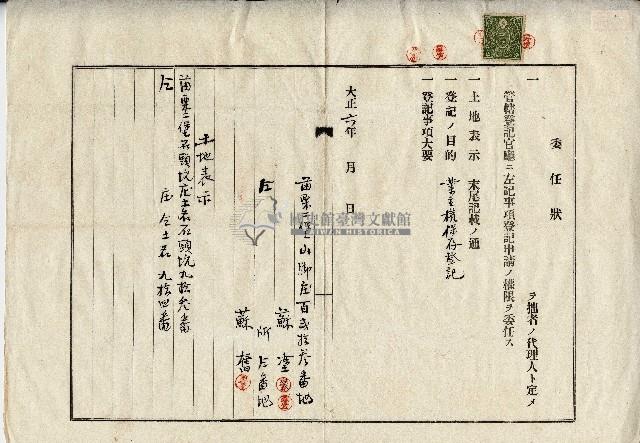 委任狀
一 ヲ拙者ノ代理人ト定メ
管轄登記官廳ニ左記事項登記申請ノ權限ヲ委任ス
一土地表示 末尾記載ノ通
一登記ノ目的 業主權保存登記
一登記事項大要
大正六年 月 日
苗栗二堡山脚庄百弍拾參番地
蘇
仝 所仝番地
蘇
土地表示
苗栗二堡石頭坑庄土名石頭坑九拾參番
仝 庄仝土名九拾四番
國史館臺灣文獻館
TAIWAN HISTORICA